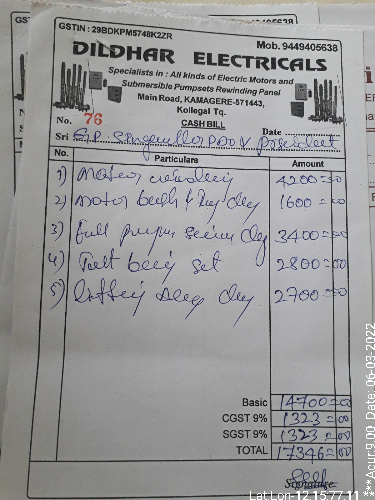 GSTIN : 29BDKPM5748K2ZR
Mob. 9449405638
DILDHAR ELECTRICALS
Specialists in : All kinds of Electric Motors and
Submersible Pumpsets Rewinding Panel
Main Road, KAMAGERE-571443,
Kollegal Tq.
No. 76
CASH BILL
Date
Sri PDO & president
No. Particulars Amount
1) Motor 4200=00
2) Motor bush & 1600=00
3) full 3400=00
4) set 2800=00
5) 2700=00
Basic 14700=00
CGST 9% 1323=00
SGST 9% 1323=00
TOTAL 17346=00
Signature
Lat Lon-12.15,77.11
***Acur:9.00 Date: 06-03-2022